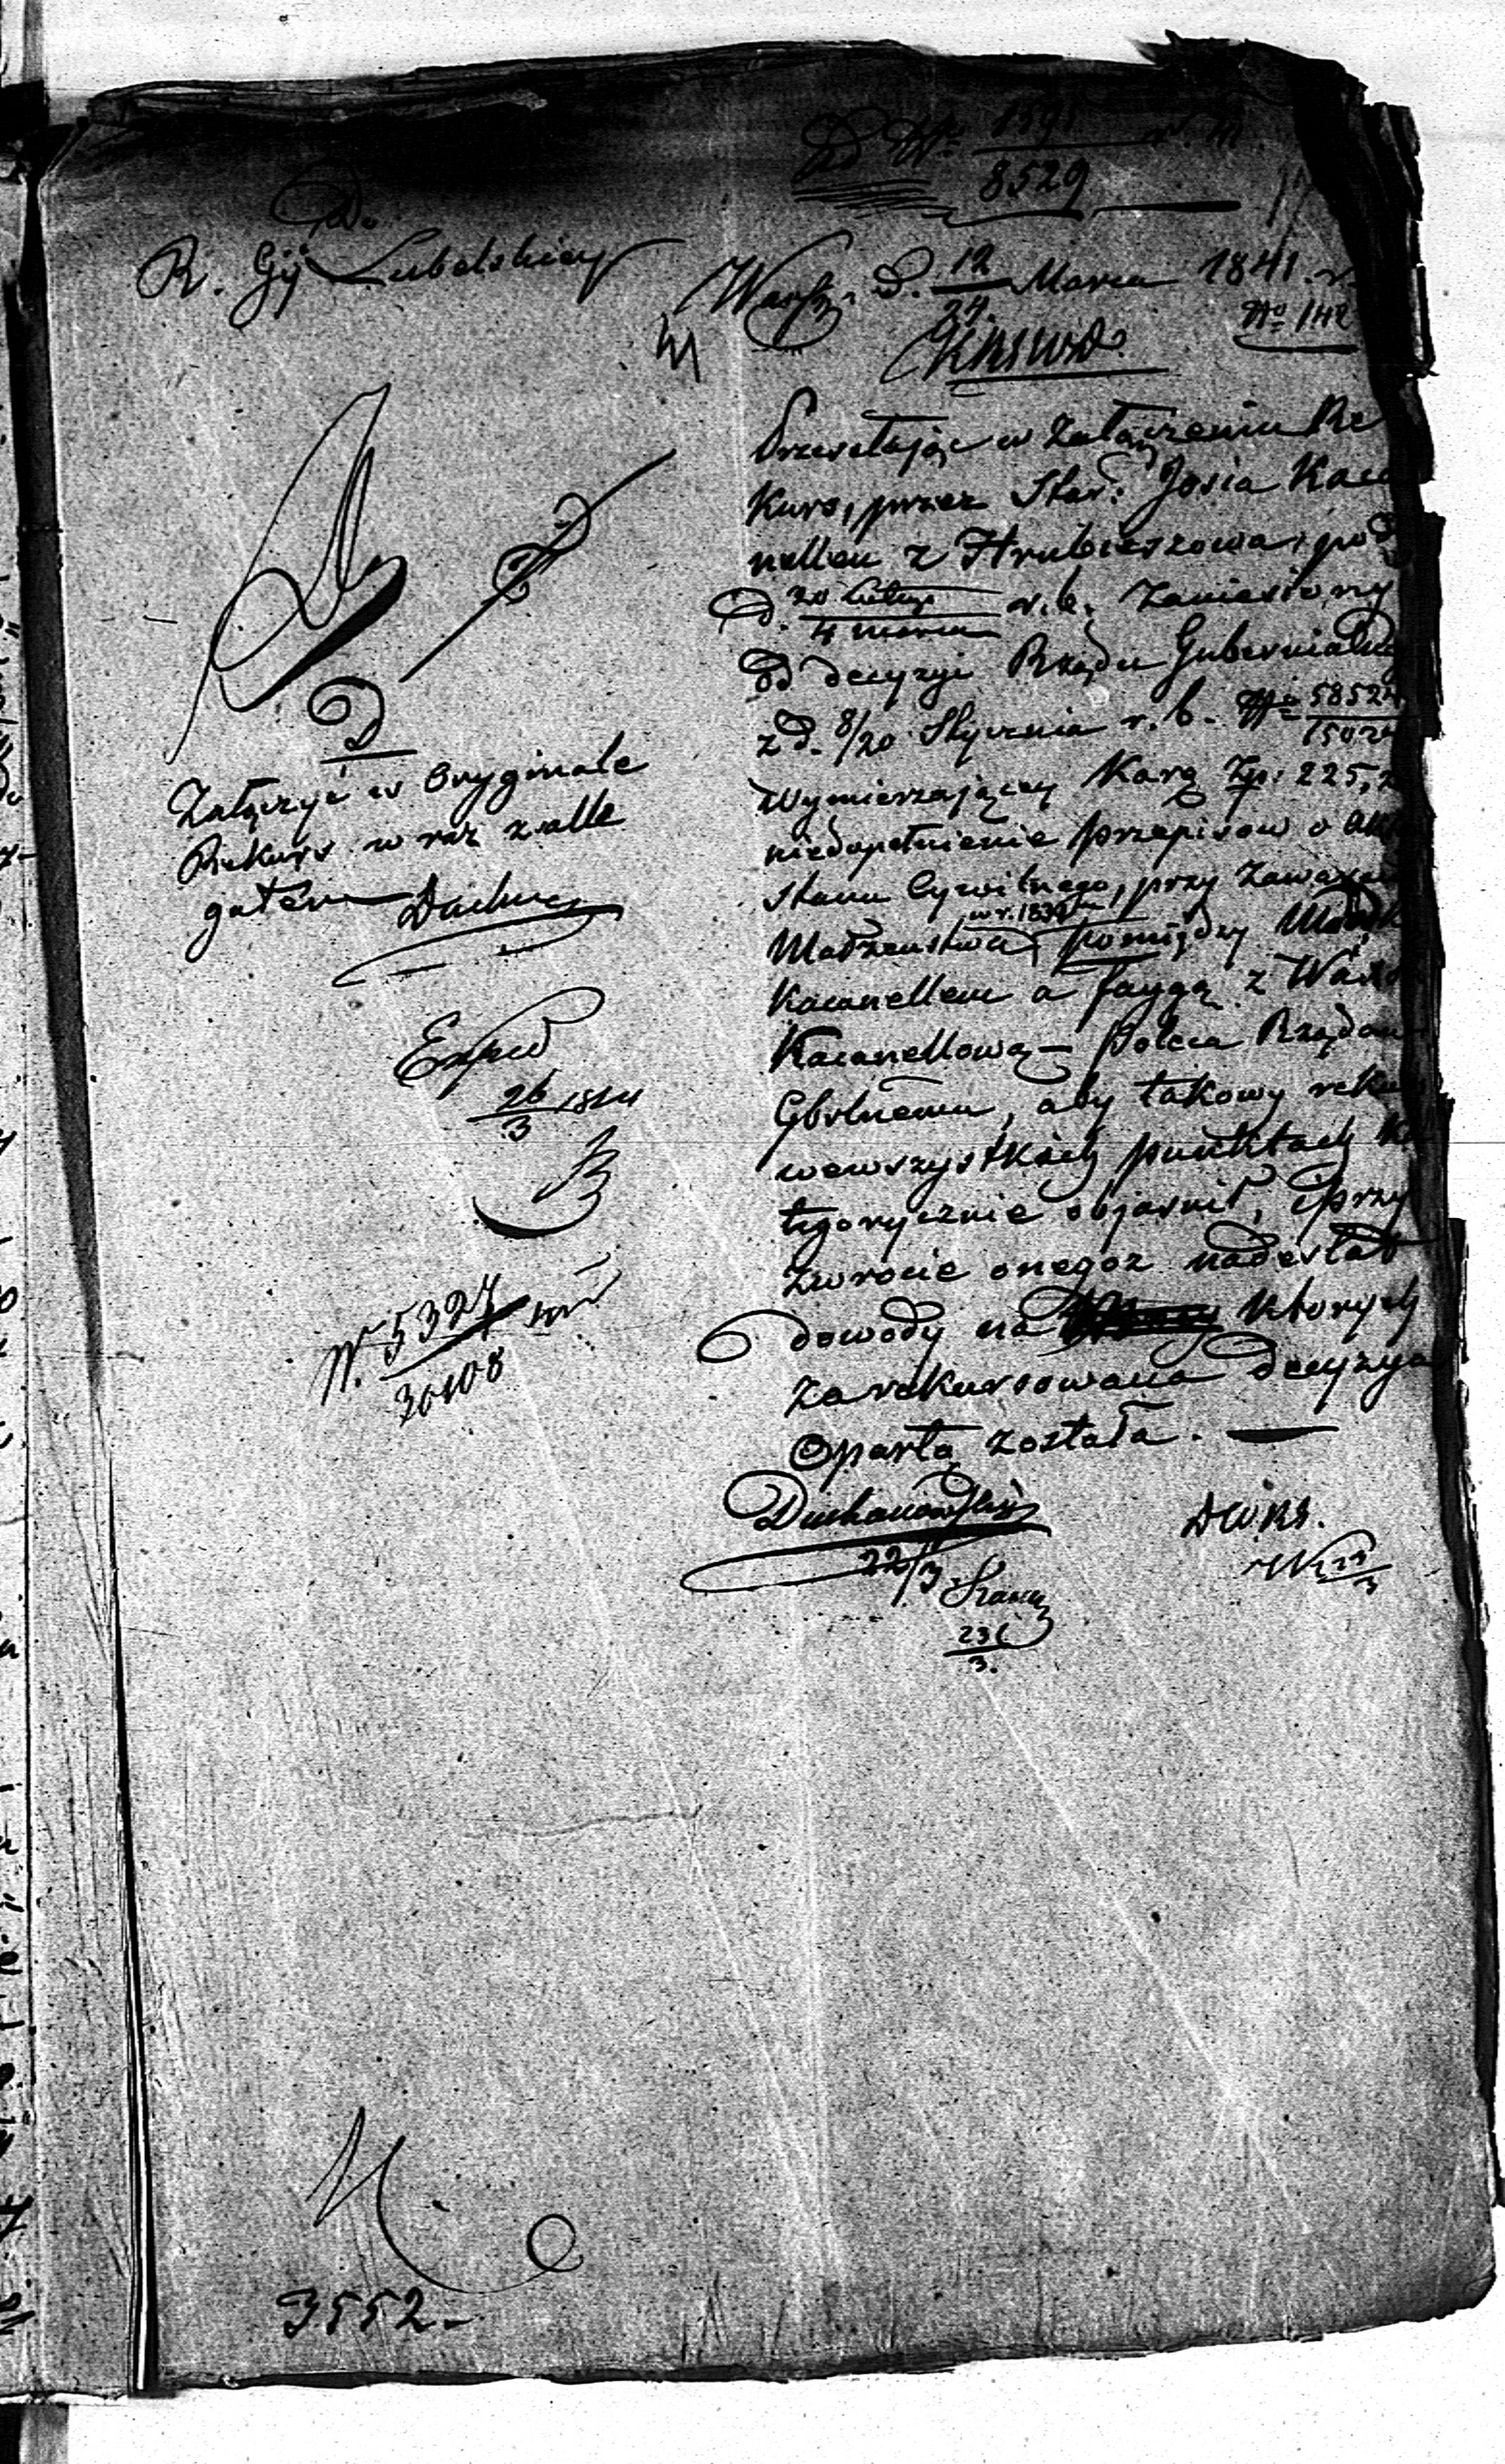 Do
R. Gł Lubelskiey
Do No 1595 r. m.
8529
Warsz. D. 12/24 Marca 1841. r.
No 142
KRSWD.
Przesełając w załączeniu Re
kurs, przez Star: Josia Kaca
nellen z Hrubieszowa, pod
D. 20 Lutego / 4 marca r. b. zaniesiony
od decyzyi Rządu Gubernialne
z D. 8/20 Stycznia r. b. No 58524
1502
wymierzającey Karę Zp: 225, z
niedopełnienie przepisow o Akt
Stanu Cywilnego, przy zawarciu
w r. 183
Małżeństwa pomiędzy
Kacanellem a Faygą z
Kacanellową — poleca Rządow
Gbrlnemu, aby takowy reku
wewszystkich punktach Ka
tegorycznie objasnił, i przy
zwrocie onegoz nadesłał
dowody na ktorych
zarekursowana decyzya
Oparta została. —
Duchanowski
22/3
23/3.
DWRS.
D
Załączyć w Oryginale
Rekurs w raz z alle
gatem
Exped
26/3 1841
N. 5327
30108
3552 -